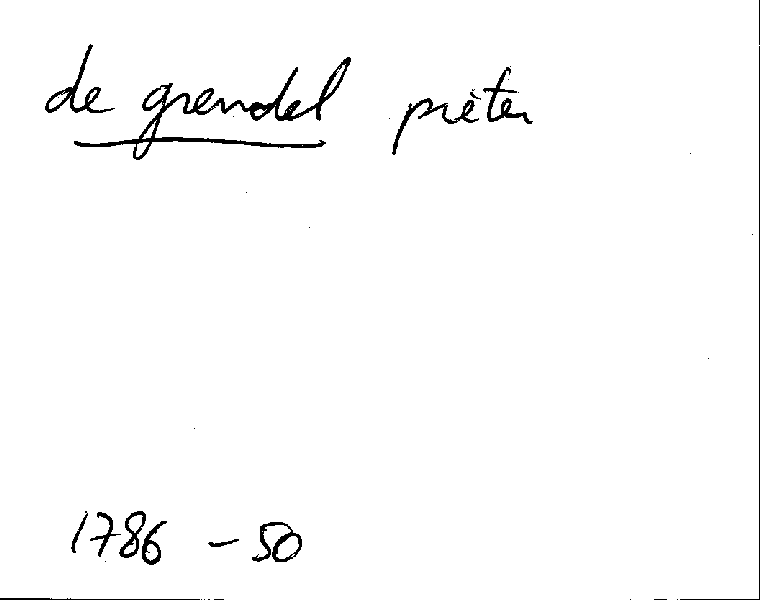 de grendel prèter
1786 - 50